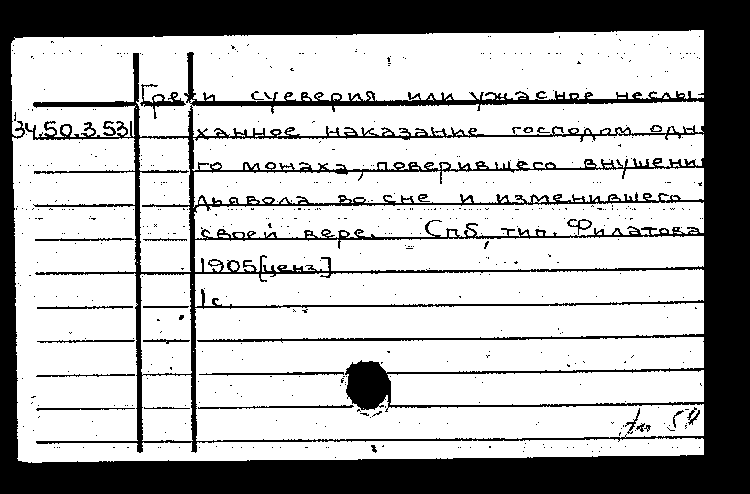 Грехи суеверия или ужасное неслы-
34.50.3.531 ханное наказание господом одно
го монаха, поверившего внушени
дьявола во сне и изменившего
своей вере. Спб, тип. Филатова
1905[ценз.]
1с.
54